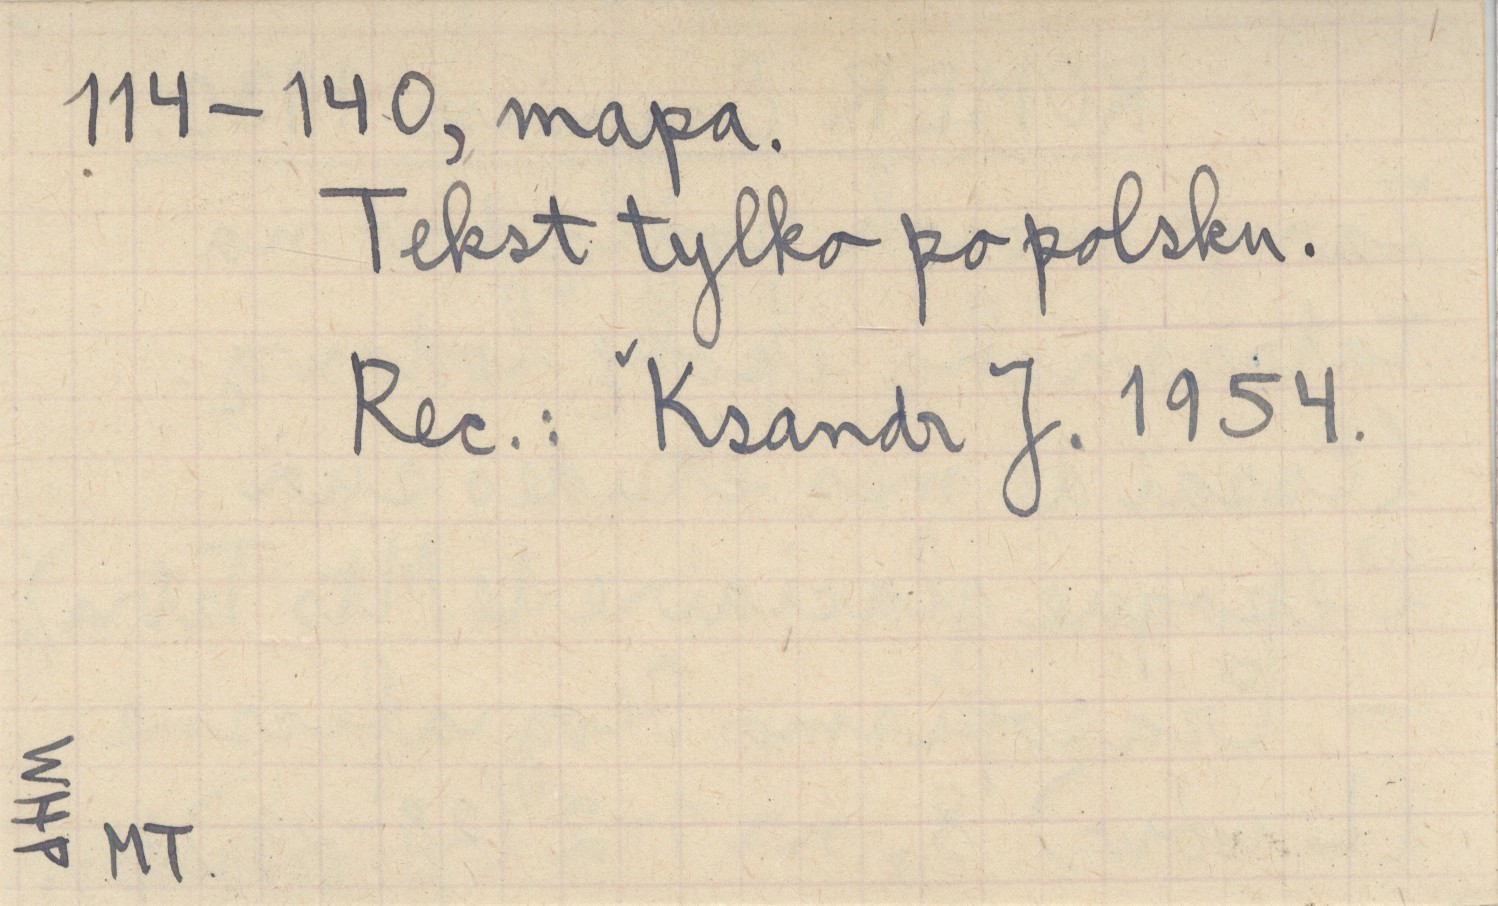 114-140, mapa.
Tekst tylko po polsku.
Rec.: ˇKsandr J. 1954.
WHP
MT.